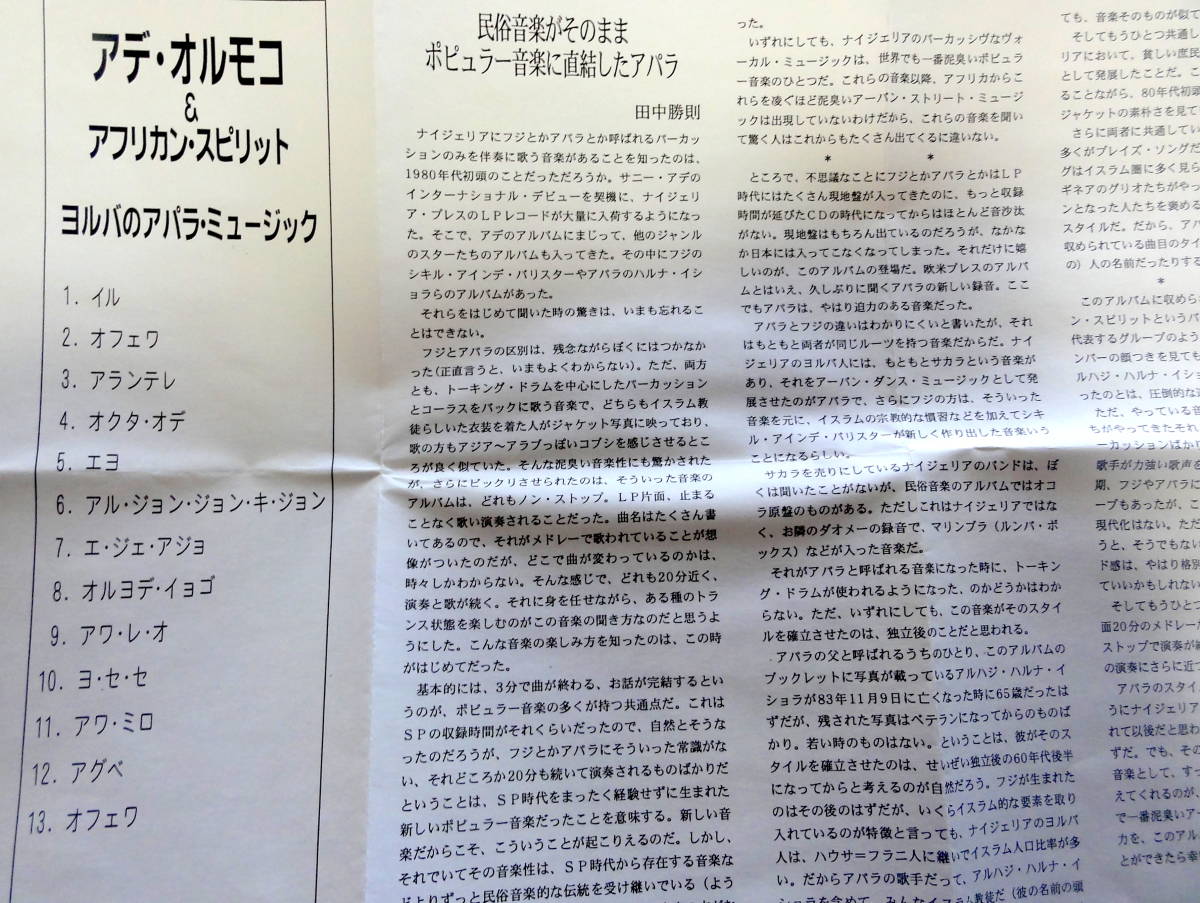 アデ・オルモコ
&
アフリカン・スピリット
ヨルバのアパラ・ミュージック
1. イル
2. オフェワ
3. アランテレ
4. オクタ・オデ
5. エヨ
6. アル・ジョン・ジョン・キ・ジョン
7. エ・ジェ・アジョ
8. オルヨデ・イョゴ
9. アワ・レ・オ
10. ヨ・セ・セ
11. アワ・ミロ
12. アグベ
13. オフェワ
民俗音楽がそのまま
ポピュラー音楽に直結したアパラ
田中勝則
ナイジェリアにフジとかアパラとか呼ばれるパーカッ
ションのみを伴奏に歌う音楽があることを知ったのは、
1980年代初頭のことだっただろうか。サニー・アデの
インターナショナル・デビューを契機に、ナイジェリ
ア・プレスのLPレコードが大量に入荷するようになっ
た。そこで、アデのアルバムにまじって、他のジャンル
のスターたちのアルバムも入ってきた。その中にフジの
シキル・アインデ・バリスターやアパラのハルナ・イシ
ョラらのアルバムがあった。
それらをはじめて聞いた時の驚きは、いまも忘れるこ
とはできない。
フジとアパラの区別は、残念ながらぼくにはつかなか
った(正直言うと、いまもよくわからない)。ただ、両方
とも、トーキング・ドラムを中心にしたパーカッション
とコーラスをバックに歌う音楽で、どちらもイスラム教
徒らしいた衣装を着た人がジャケット写真に映っており、
歌の方もアジア〜アラブっぽいコブシを感じさせるとこ
ろが良く似ていた。そんな泥臭い音楽性にも驚かされた
が、さらにビックリさせられたのは、そういった音楽の
アルバムは、どれもノン・ストップ。LP片面、止まる
ことなく歌い演奏されることだった。曲名はたくさん書
いてあるので、それがメドレーで歌われていることが想
像がついたのだが、どこで曲が変わっているのかは、
時々しかわからない。そんな感じで、どれも20分近く、
演奏と歌が続く。それに身を任せながら、ある種のトラ
ンス状態を楽しむのがこの音楽の聞き方なのだと思うよ
うにした。こんな音楽の楽しみ方を知ったのは、この時
がはじめてだった。
基本的には、3分で曲が終わる、お話が完結するとい
うのが、ポピュラー音楽の多くが持つ共通点だ。これは
SPの収録時間がそれくらいだったので、自然とそうな
ったのだろうが、フジとかアパラにそういった常識がな
い、それどころか20分も続いて演奏されるものばかりだ
ということは、SP時代をまったく経験せずに生まれた
新しいポピュラー音楽だったことを意味する。新しい音
楽だからこそ、こういうことが起こりえるのだ。しかし、
それでいてその音楽性は、SP時代から存在する音楽な
どよりずっと民俗音楽的な伝統を受け継いでいる(よう
った。
いずれにしても、ナイジェリアのパーカッシヴなヴォ
ーカル・ミュージックは、世界でも一番泥臭いポピュラ
ー音楽のひとつだ。これらの音楽以降、アフリカからこ
れらを凌ぐほど泥臭いアーバン・ストリート・ミュージ
ックは出現していないわけだから、これらの音楽を聞い
て驚く人はこれからもたくさん出てくるに違いない。
* *
ところで、不思議なことにフジとかアパラとかはLP
時代にはたくさん現地盤が入ってきたのに、もっと収録
時間が延びたCDの時代になってからはほとんど音沙汰
がない。現地盤はもちろん出ているのだろうが、なかな
か日本には入ってこなくなってしまった。それだけに嬉
しいのが、このアルバムの登場だ。欧米プレスのアルバ
ムとはいえ、久しぶりに聞くアパラの新しい録音。ここ
でもアパラは、やはり迫力のある音楽だった。
アパラとフジの違いはわかりにくいと書いたが、それ
はもともと両者が同じルーツを持つ音楽だからだ。ナイ
ジェリアのヨルバ人には、もともとサカラという音楽が
あり、それをアーバン・ダンス・ミュージックとして発
展させたのがアパラで、さらにフジの方は、そういった
音楽を元に、イスラムの宗教的な慣習などを加えてシキ
ル・アインデ・バリスターが新しく作り出した音楽いう
ことになるらしい。
サカラを売りにしているナイジェリアのバンドは、ぼ
くは聞いたことがないが、民俗音楽のアルバムではオコ
ラ原盤のものがある。ただしこれはナイジェリアではな
く、お隣のダオメーの録音で、マリンブラ(ルンバ・ボ
ックス)などが入った音楽だ。
それがアパラと呼ばれる音楽になった時に、トーキン
グ・ドラムが使われるようになった、のかどうかはわか
らない。ただ、いずれにしても、この音楽がそのスタイ
ルを確立させたのは、独立後のことだと思われる。
アパラの父と呼ばれるうちのひとり、このアルバムの
ブックレットに写真が載っているアルハジ・ハルナ・イ
ショラが83年11月9日に亡くなった時に65歳だったは
ずだが、残された写真はベテランになってからのものば
かり。若い時のものはない。ということは、彼がそのス
タイルを確立させたのは、せいぜい独立後の60年代後半
になってからと考えるのが自然だろう。フジが生まれた
のはその後のはずだが、いくらイスラム的な要素を取り
入れているのが特徴と言っても、ナイジェリアのヨルバ
人は、ハウサ=フラニ人に継いでイスラム人口比率が多
い。だからアパラの歌手だって、アルハジ・ハルナ・イ
ショラを含めて、みんなイスラム教徒だ(彼の名前の頭
ても、音楽そのものが似て
そしてもうひとつ共通し
リアにおいて、貧しい庶民
として発展したことだ。こ
ることながら、80年代初頭
ジャケットの素朴さを見て
さらに両者に共通してい
多くがプレイズ・ソングだ
グはイスラム圏に多く見ら
ギネアのグリオたちがやっ
ンとなった人たちを褒める
スタイルだ。だから、アパ
収められている曲目のタイ
の)人の名前だったりする
*
このアルバムに収められ
ン・スピリットというバ
代表するグループのよう
ンバーの顔つきを見ても
ルハジ・ハルナ・イショ
ったのとは、圧倒的な
ただ、やっている音
ちがやってきたそれ
ーカッションばか
歌手が力強い歌声を
期、フジやアパラに
ープもあったが、こ
現代化はない。ただ
うと、そうでもない
ド感は、やはり格別
ていいかもしれない
そしてもうひとつ
面20分のメドレーが
ストップで演奏が
の演奏にさらに近づ
アパラのスタイ
うにナイジェリア
れて以後だと思わ
ずだ。でも、その
音楽として、すっ
えてくれるのが、
で一番泥臭いアー
力を、このアル
とができたら幸